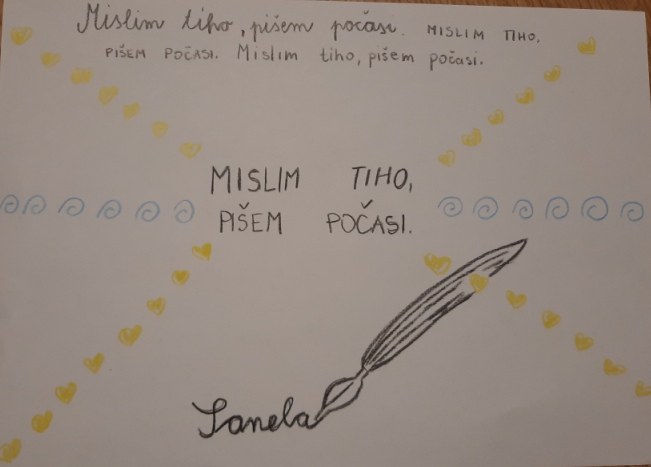 Mislim tiho, pišem počasi. MISLIM TIHO,
PIŠEM POČASI. Mislim tiho, pišem počasi.
MISLIM TIHO,
PIŠEM POČASI.
Sanela